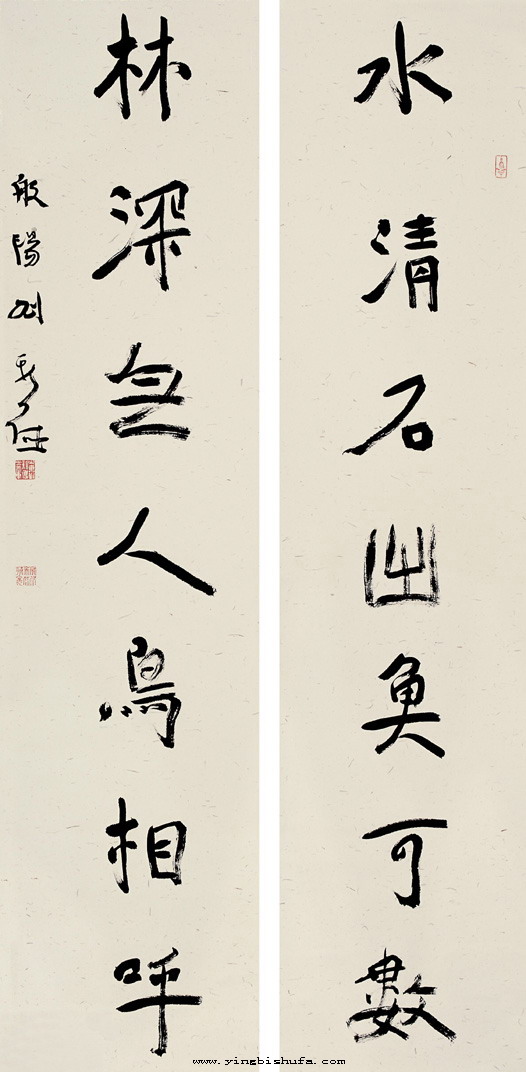 水清石出魚可數
林深无人鳥相呼
般陽
www.yingbishufa.com